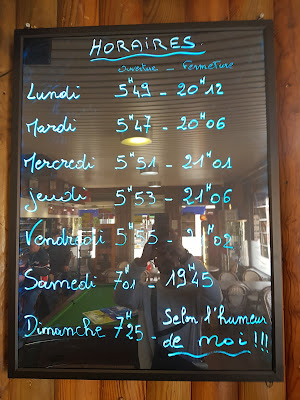 HORAIRES
Ouverture - Fermeture
Lundi 5H49 - 20H12
Mardi 5H47 - 20H06
Mercredi 5H51 - 21H01
jeudi 5H53 - 21H06
Vendredi 5H55 - 21H02
Samedi 7H01 - 19H45
Dimanche 7H25 - Selon l'humeur
de moi !!!